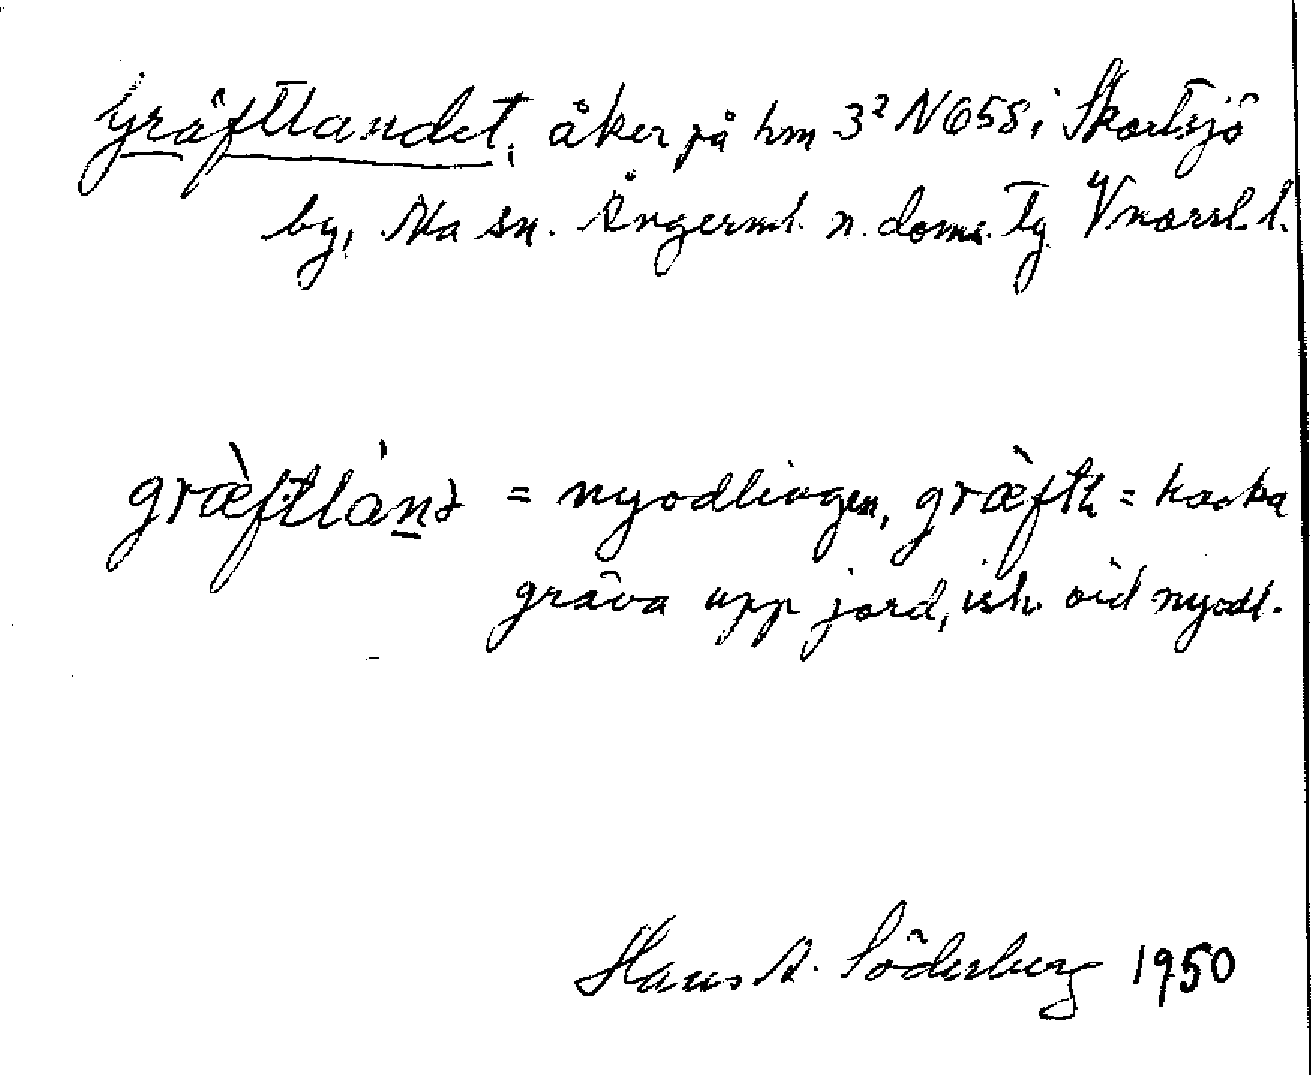 Gräftlandet, åker på hm 3² N658 i Skortsjö
by, Ådals-Liden sn. Ångerml. n. doms. Tg Vnorrl. l.
græ̀ftlȧṉə = nyodlingen, græ̀ftə = hacka
gräva upp jord, ish. vid nyodl.
Hans A. Söderberg 1950